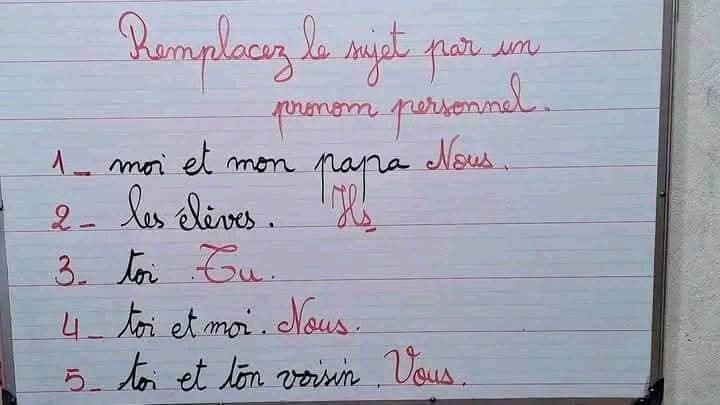 Remplacez le sujet par un
pronom personnel.
1_ moi et mon papa Nous.
2_ les élèves. Ils
3_ toi Tu.
4_ toi et moi. Nous.
5_ toi et ton voisin. Vous.